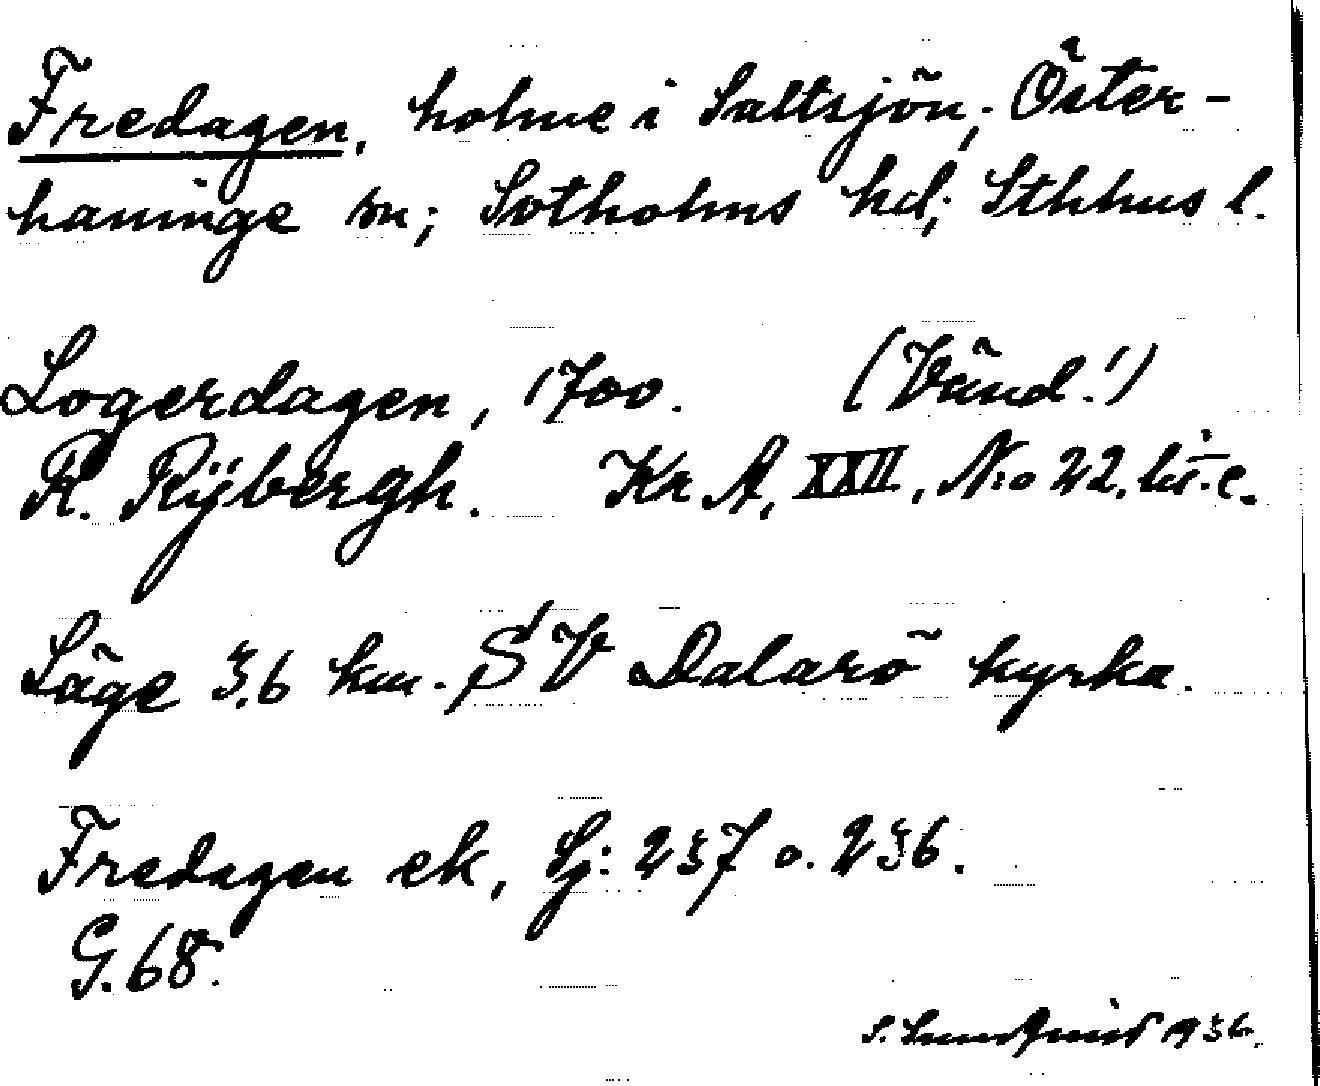 Fredagen, holme i Saltsjön; Öster-
haninge sn; Sotholms hd; Sthhus l.
Logerdagen, 1700. (Vänd!)
R. Rÿbergh. Kr A, XXII, No 22. lit. c.
Läge 3,6 km. SV Dalarö kyrka.
Fredagen ek, Sj: 237 o. 236.
G. 68.
S. Lundqvist 1936.